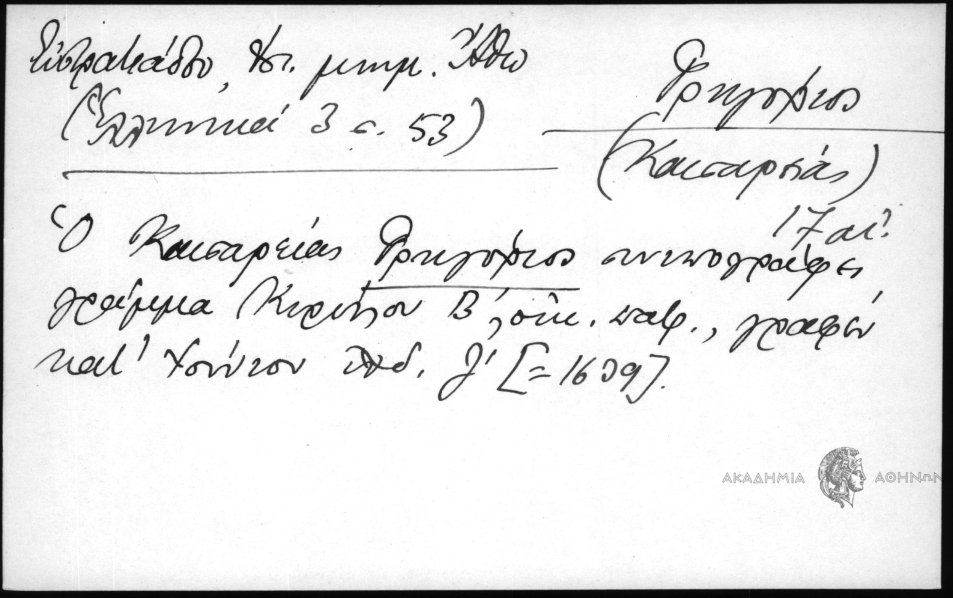 Εὐστρατιάδου, Ἱστ. μνημ. Ἄθω
(Ἑλληνικά 3 σ. 53)
Γρηγόριος
(Καισαρείας)
17 αἰ.
Ὁ Καισαρείας Γρηγόριος συνυπογράφει
γράμμα Κυρίλλου Β΄, οἰκ. πατρ., γραφέν
κατ' Ἰούνιον ἰνδ. ζ΄ [=1639].
ΑΚΑΔΗΜΙΑ ΑΘΗΝΩΝ